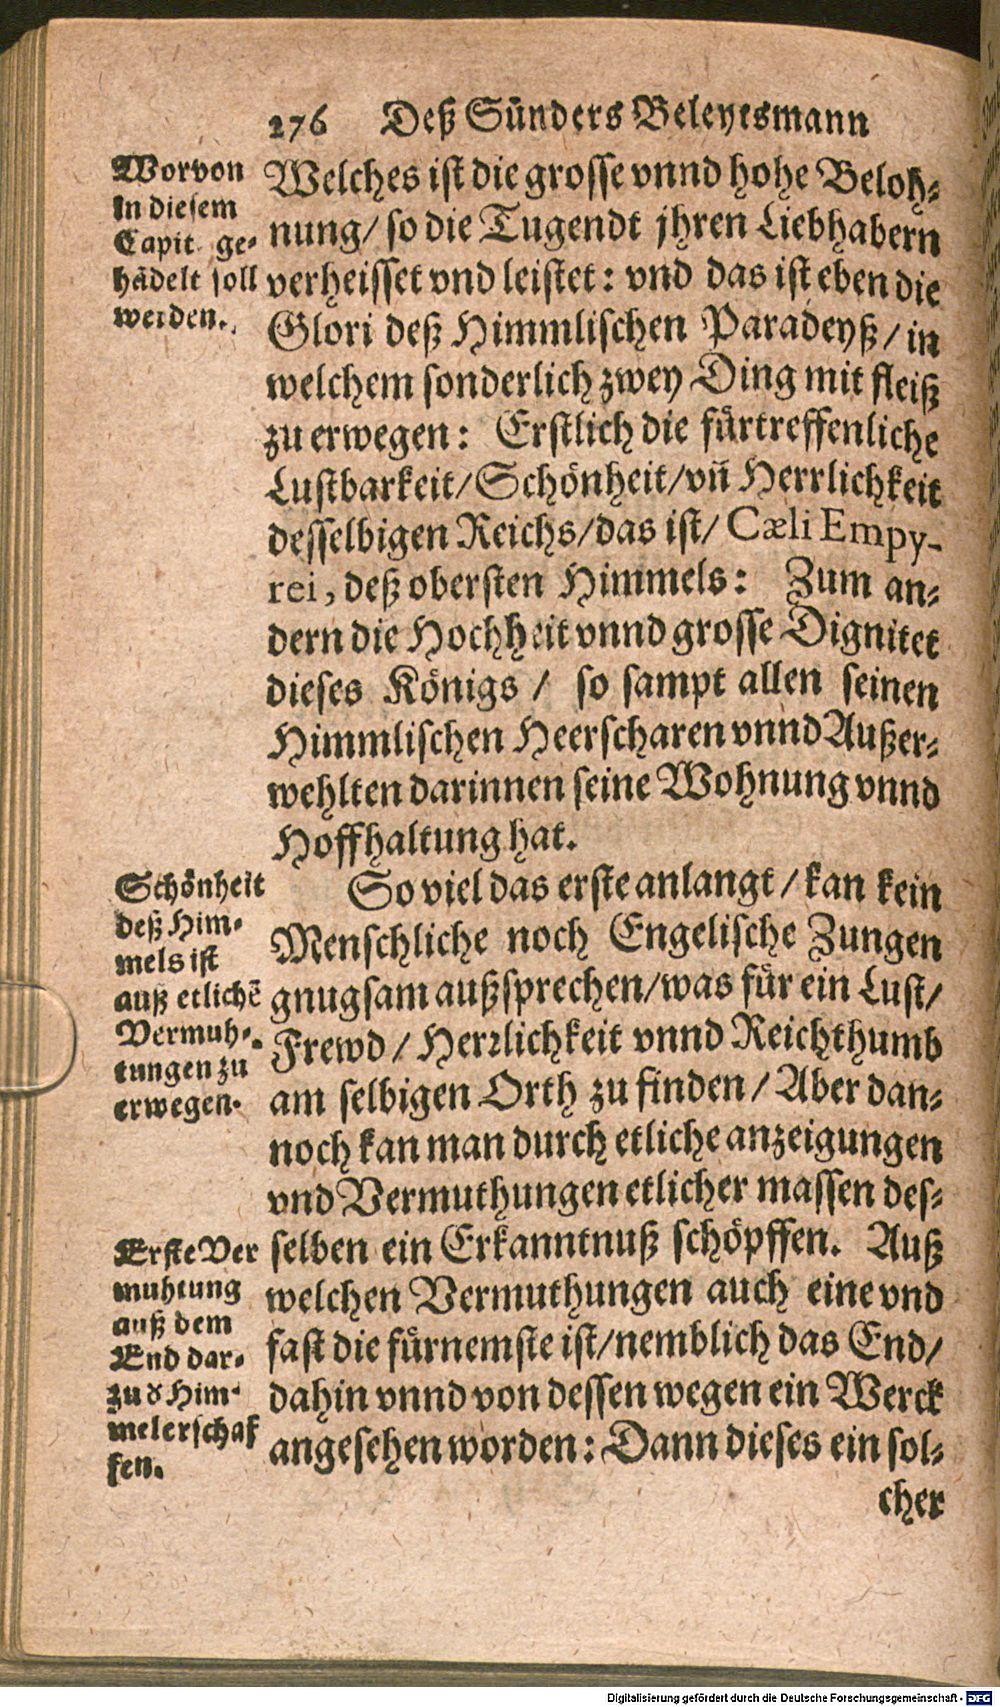 276 Deß Sünders Beleytsmann
Worvon
in diesem
Capit. ge-
hãdelt soll
werden.
Welches ist die grosse vnnd hohe Beloh-
nung/ so die Tugendt jhren Liebhabern
verheisset vnd leistet: vnd das ist eben die
Glori deß Himmlischen Paradeyß/ in
welchem sonderlich zwey Ding mit fleiß
zu erwegen: Erstlich die fürtreffenliche
Lustbarkeit/ Schönheit/ vñ Herrlichkeit
desselbigen Reichs/ das ist/ Cæli Empy-
rei, deß obersten Himmels: Zum an-
dern die Hochheit vnnd grosse Dignitet
dieses Königs / so sampt allen seinen
Himmlischen Heerscharen vnnd Außer-
wehlten darinnen seine Wohnung vnnd
Hoffhaltung hat.
Schönheit
deß Him-
mels ist
auß etlichẽ
Vermuh-
tungen zu
erwegen.
So viel das erste anlangt / kan kein
Menschliche noch Engelische Zungen
gnugsam außsprechen/ was für ein Lust/
Frewd / Herrlichkeit vnnd Reichthumb
am selbigen Orth zu finden / Aber dan-
noch kan man durch etliche anzeigungen
vnd Vermuthungen etlicher massen des-
selben ein Erkanntnuß schöpffen. Auß
welchen Vermuthungen auch eine vnd
fast die fürnemste ist/ nemblich das End/
dahin vnnd von dessen wegen ein Werck
angesehen worden: Dann dieses ein sol-
Erste Ver
muhtung
auß dem
End dar-
zu d Him-
mel erschaf
fen.
cher
Digitalisierung gefördert durch die Deutsche Forschungsgemeinschaft - DFG